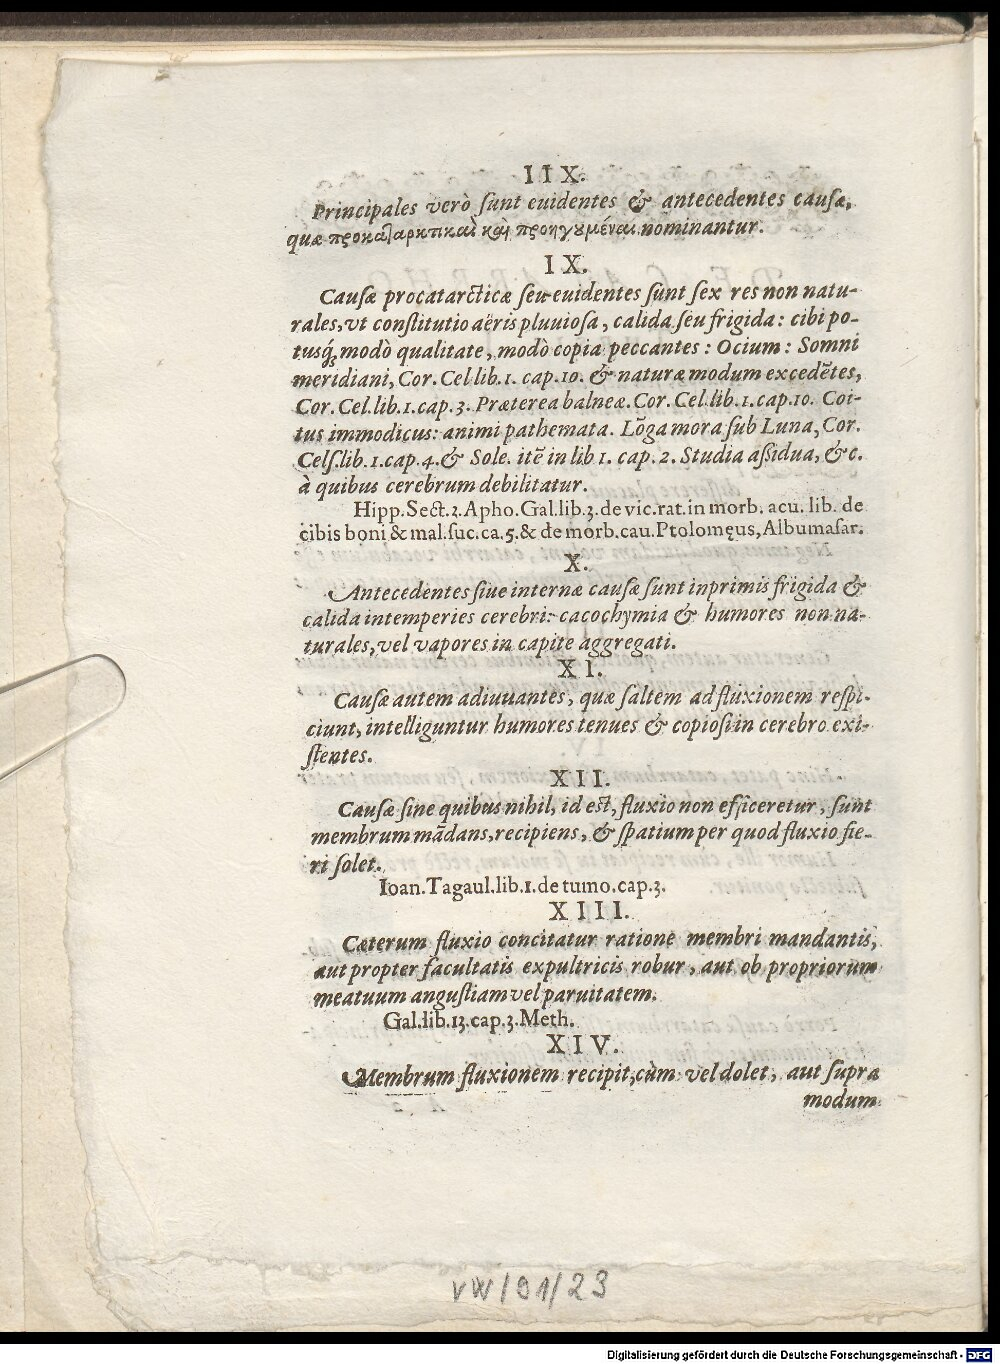 IIX.
Principales verò ſunt euidentes & antecedentes cauſæ,
quæ προκαταρκτικαὶ καὶ προηγουμέναι nominantur.
IX.
Cauſæ procatarcticæ ſeu euidentes ſunt ſex res non natu-
rales, vt conſtitutio aëris pluuioſa, calida ſeu frigida: cibi po-
tusq́; modò qualitate, modò copia peccantes: Ocium: Somni
meridiani, Cor. Cel lib. 1. cap. 10. & naturæ modum excedẽtes,
Cor. Cel. lib. 1. cap. 3. Præterea balneæ. Cor. Cel. lib. 1. cap. 10. Coi-
tus immodicus: animi pathemata. Lõga mora ſub Luna, Cor.
Celſ. lib. 1. cap. 4. & Sole. itẽ in lib 1. cap. 2. Studia aſsidua, &c.
à quibus cerebrum debilitatur.
Hipp. Sect. 2. Apho. Gal. lib. 3. de vic. rat. in morb. acu. lib. de
cibis boni & mal. ſuc. ca. 5. & de morb. cau. Ptolomęus, Albumaſar.
X.
Antecedentes ſiue internæ cauſæ ſunt inprimis frigida &
calida intemperies cerebri: cacochymia & humores non na-
turales, vel vapores in capite aggregati.
XI.
Cauſæ autem adiuuantes, quæ ſaltem ad fluxionem reſpi-
ciunt, intelliguntur humores tenues & copioſi in cerebro exi-
ſtentes.
XII.
Cauſæ ſine quibus nihil, id eſt, fluxio non efficeretur, ſunt
membrum mãdans, recipiens, & ſpatium per quod fluxio fie-
ri ſolet.
Ioan. Tagaul. lib. 1. de tumo. cap. 3.
XIII.
Cæterum fluxio concitatur ratione membri mandantis,
aut propter facultatis expultricis robur, aut ob propriorum
meatuum anguſtiam vel paruitatem.
Gal. lib. 13. cap. 3. Meth.
XIV.
Membrum fluxionem recipit, cùm vel dolet, aut ſupra
modum
VW/91/23
Digitalisierung gefördert durch die Deutsche Forschungsgemeinschaft - DFG